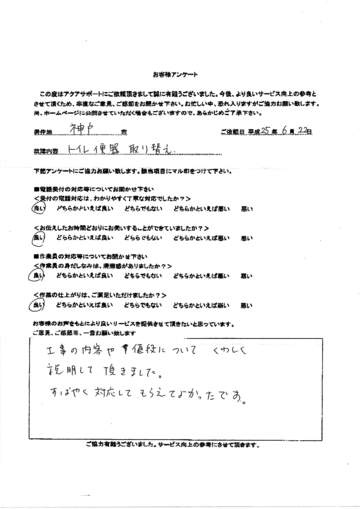 お客様アンケート
この度はアクアサポートにご依頼頂きまして誠に有難うございました。今後、より良いサービス向上の参考と
させて頂くため、率直なご意見、ご感想をお聞かせ下さい。お忙しい中、恐れ入りますがご協力お願い致します。
尚、ホームページに公開させていただく場合もございますので、あらかじめご了承下さい。
神戸 市 ご依頼日 平成25年 6月22日
故障内容 トイレ便器 取り替え
下記アンケートにご協力お願い致します。該当項目にマル印をつけて下さい。
■電話受付の対応等についてお聞かせ下さい
＜受付の電話対応は、わかりやすく丁寧な対応でしたか？＞
良い どちらかといえば良い どちらでもない どちらかといえば悪い 悪い
＜お伝えしたお時間どおりにお伺いすることができていましたか？＞
良い どちらかといえば良い どちらでもない どちらかといえば悪い 悪い
■作業員の対応等についてお聞かせ下さい
＜作業員の身だしなみは、清潔感がありましたか？＞
良い どちらかといえば良い どちらでもない どちらかといえば悪い 悪い
＜作業の仕上がりは、ご満足いただけましたか？＞
良い どちらかといえば良い どちらでもない どちらかといえば悪い 悪い
お客様のお声をもとにより良いサービスを提供させて頂きたいと思っています。
ご意見、ご感想等、一言お願い致します
工事の内容や 値段について くわしく
説明して 頂きました。
すばやく 対応して もらえてよかったです。
ご協力有難うございました。サービス向上の参考にさせて頂きます。